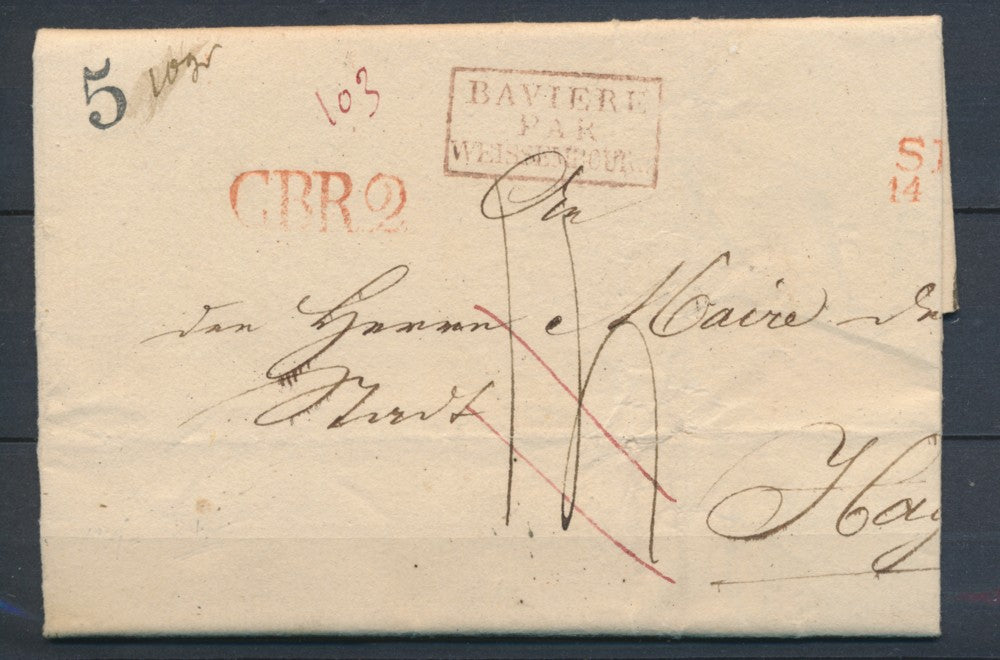 5 10gr
103
BAVIERE
PAR
WEISSEMBOUR
CBR2
S
14
An
den Herrn Maire de
Stadt
Hag